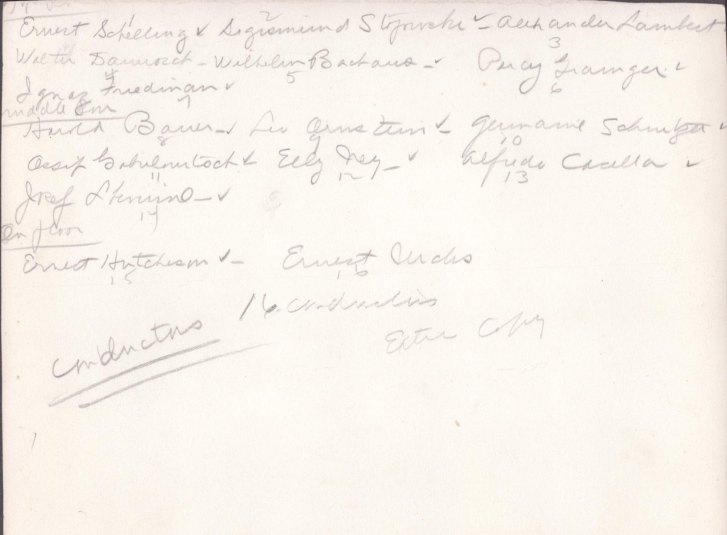 Ernest Schelling ✓ Sigismund Stojowski ✓ - Alexander Lambert
3
Walter Damrosch - Wilhelm Bachaus - ✓ Percy Grainger ✓
4 5 6
Ignaz Friedman ✓
7
middle row
Harold Bauer - ✓ Leo Ornstein ✓ - Germaine Schnitzer ✓
8 9 10
Ossip Gabrilowitsch ✓ Elly Ney - ✓ Alfredo Casella ✓
11 12 13
Josef Lhevinne - ✓
14
on floor
Ernest Hutcheson ✓ - Ernest Urchs
15 16
16 conductors
conductors
Extra Copy